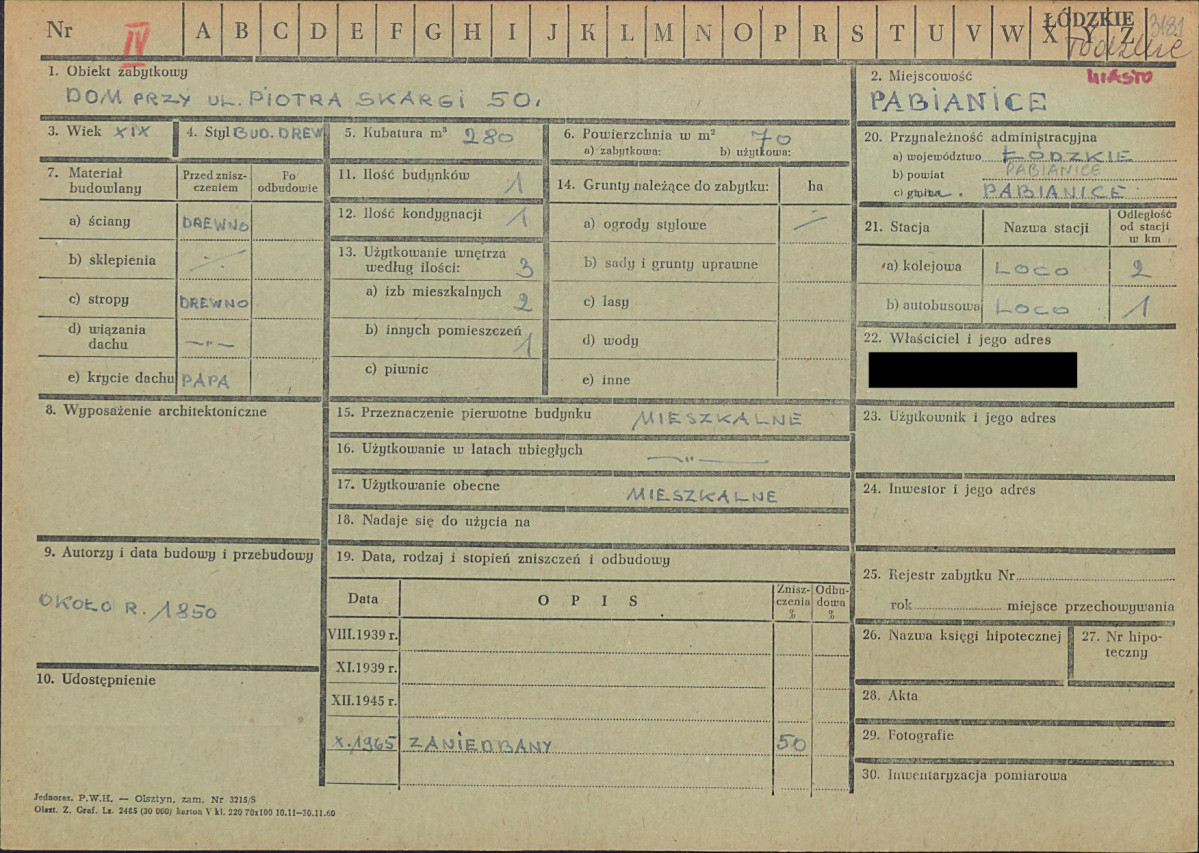 Nr IV A B C D E F G H I J K L M N O P R S T U V W X Y Z
ŁÓDZKIE
3181
łódzkie
1. Obiekt zabytkowy
DOM PRZY UL. PIOTRA SKARGI 50.
2. Miejscowość MIASTO
PABIANICE
3. Wiek XIX
4. Styl BUD. DREW
5. Kubatura m³ 280
6. Powierzchnia w m² 70
a) zabytkowa: b) użytkowa:
7. Materiał budowlany
Przed zniszczeniem
Po odbudowie
a) ściany DREWNO
b) sklepienia —
c) stropy DREWNO
d) wiązania dachu —"—
e) krycie dachu PAPA
8. Wyposażenie architektoniczne
9. Autorzy i data budowy i przebudowy
OKOŁO R. 1850
10. Udostępnienie
11. Ilość budynków 1
12. Ilość kondygnacji 1
13. Użytkowanie wnętrza według ilości: 3
a) izb mieszkalnych 2
b) innych pomieszczeń 1
c) piwnic
14. Grunty należące do zabytku: ha
a) ogrody stylowe —
b) sady i grunty uprawne
c) lasy
d) wody
e) inne
15. Przeznaczenie pierwotne budynku MIESZKALNE
16. Użytkowanie w latach ubiegłych —"—
17. Użytkowanie obecne MIESZKALNE
18. Nadaje się do użycia na
19. Data, rodzaj i stopień zniszczeń i odbudowy
Data OPIS Zniszczenia % Odbudowa %
VIII.1939 r.
XI.1939 r.
XII.1945 r.
X.1965 ZANIEDBANY 50
20. Przynależność administracyjna
a) województwo ŁÓDZKIE
b) powiat PABIANICE
c) gmina PABIANICE
21. Stacja Nazwa stacji Odległość od stacji w km
a) kolejowa LOCO 2
b) autobusowa LOCO 1
22. Właściciel i jego adres
23. Użytkownik i jego adres
24. Inwestor i jego adres
25. Rejestr zabytku Nr
rok miejsce przechowywania
26. Nazwa księgi hipotecznej
27. Nr hipoteczny
28. Akta
29. Fotografie
30. Inwentaryzacja pomiarowa
Jednoraz. P.W.H. — Olsztyn, zam. Nr 3215/S
Olszt. Z. Graf. Lz. 2465 (30 000) karton V kl. 220 70x100 10.11—30.11.60